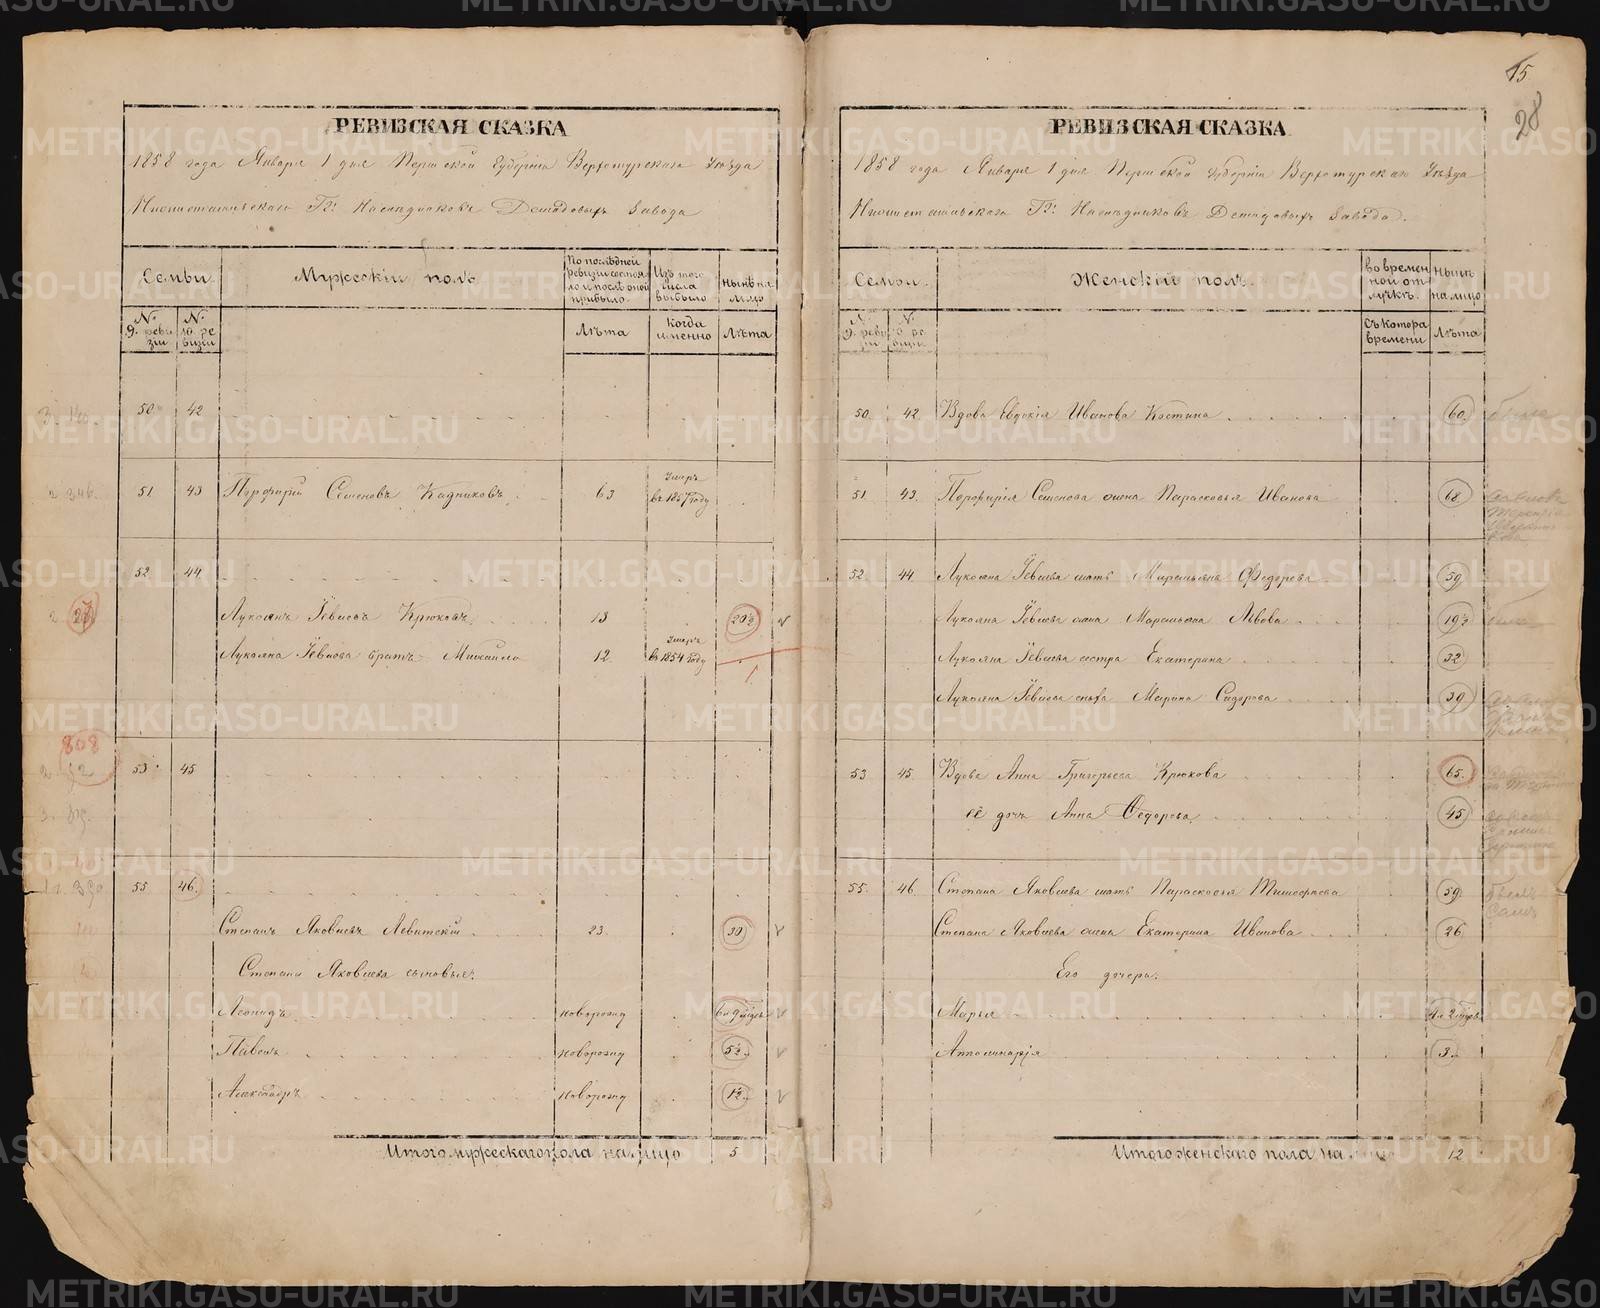 15
28
РЕВИЗСКАЯ СКАЗКА
1858 года Января 1 дня Пермской Губернiи Верхотурскаго Уѣзда
Нижнетагильскаго Гг. Наслѣдниковъ Демидовыхъ Завода
Семьи.
Мужескiй полъ
По послѣдней ревизiи состояло и послѣ оной прибыло.
Изъ того числа выбыло
Нынѣ на лицо
№ 9. ревизiи
№ 10 ревизiи
Лѣта
Когда именно
Лѣта
50 42
51 43 Порфирiй Семеновъ Кадниковъ 63 Умеръ въ 1857 году
52 44
Лукоянъ Iевлевъ Крюковъ 13 20½
Лукояна Iевлева братъ Михайло 12 Умеръ въ 1854 году
53 45
55 46.
Степанъ Яковлевъ Левитскiй 23. 30
Степана Яковлева сыновья:
Леонидъ новорожд
Павелъ новорожд 5½
Александръ новорожд 1½
Итого мужескаго пола на лицо 5
РЕВИЗСКАЯ СКАЗКА
1858 года Января 1 дня Пермской Губернiи Верхотурскаго Уѣзда
Нижнетагильскаго Гг. Наслѣдниковъ Демидовыхъ Завода.
Семьи.
Женскiй полъ.
во временной отлучкѣ.
Нынѣ на лицо
№ 9. ревизiи
№ 10 ревизiи
Съ котора времени
Лѣта
50. 42. Вдова Евдокiя Иванова Костина 60.
51 43. Порфирiя Семенова жена Парасковья Иванова 68
52. 44 Лукояна Iевлева мать Маремьяна Федорова 59
Лукояна Iевлева жена Маремьяна Львова 19½
Лукояна Iевлева сестра Екатерина 32
Лукояна Iевлева сноха Марина Сидорова 39
53 45. Вдова Анна Григорьева Крюкова 65.
её дочь Анна Федорова 45
55. 46. Степана Яковлева мать Парасковья Тимофеева 59.
Степана Яковлева жена Екатерина Иванова 26.
Его дочери:
Марья
Апполинарiя 3.
Итого женскаго пола на лицо 12
METRIKI.GASO-URAL.RU